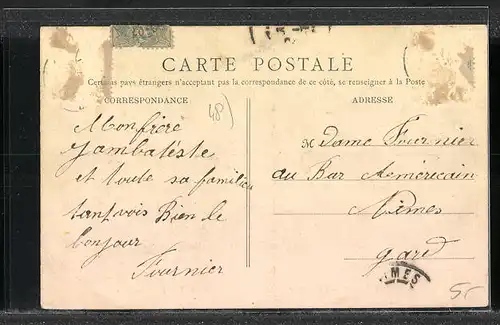 CARTE POSTALE
Certains pays étrangers n'acceptant pas la correspondance de ce côté, se renseigner à la Poste
CORRESPONDANCE
ADRESSE
48)
Mon frère
Jambatéste
et toute sa familiu
tanfvois Bien le
bonjour
Fournier
M dame Fournier
au Bar Aeméricain
Nimes
gard
IMES
5-